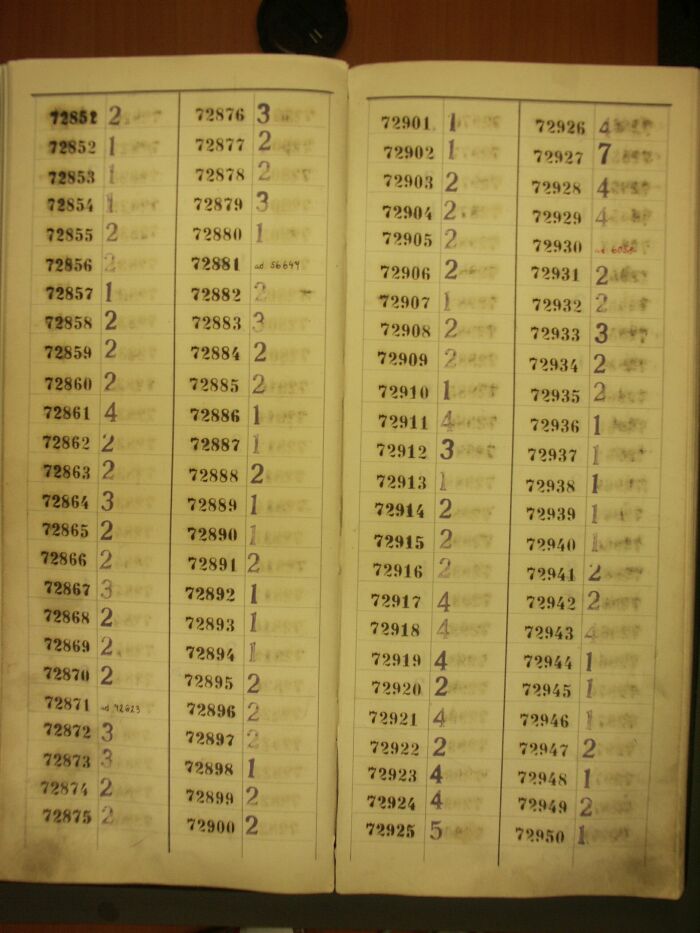 72851 2
72852 1
72853 1
72854 1
72855 2
72856 2
72857 1
72858 2
72859 2
72860 2
72861 4
72862 2
72863 2
72864 3
72865 2
72866 2
72867 3
72868 2
72869 2
72870 2
72871 ad 42623
72872 3
72873 3
72874 2
72875 2
72876 3
72877 2
72878 2
72879 3
72880 1
72881 ad 56644
72882 2
72883 3
72884 2
72885 2
72886 1
72887 1
72888 2
72889 1
72890 1
72891 2
72892 1
72893 1
72894 1
72895 2
72896 2
72897 2
72898 1
72899 2
72900 2
72901 1
72902 1
72903 2
72904 2
72905 2
72906 2
72907 1
72908 2
72909 2
72910 1
72911 4
72912 3
72913 1
72914 2
72915 2
72916 2
72917 4
72918 4
72919 4
72920 2
72921 4
72922 2
72923 4
72924 4
72925 5
72926 4
72927 7
72928 4
72929 4
72930
72931 2
72932 2
72933 3
72934 2
72935 2
72936 1
72937 1
72938 1
72939 1
72940 1
72941 2
72942 2
72943 4
72944 1
72945 1
72946 1
72947 2
72948 1
72949 2
72950 1